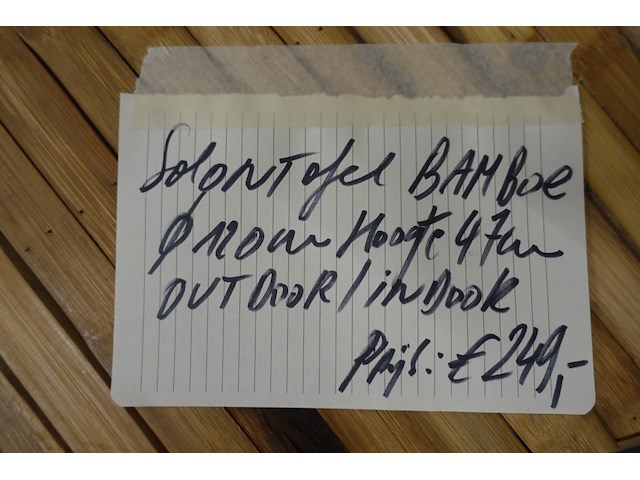 SalonTafel BAMBOE
Ø 120 cm Hoogte 47cm
OUTDOOR / inDOOR
Prijs: € 249,-